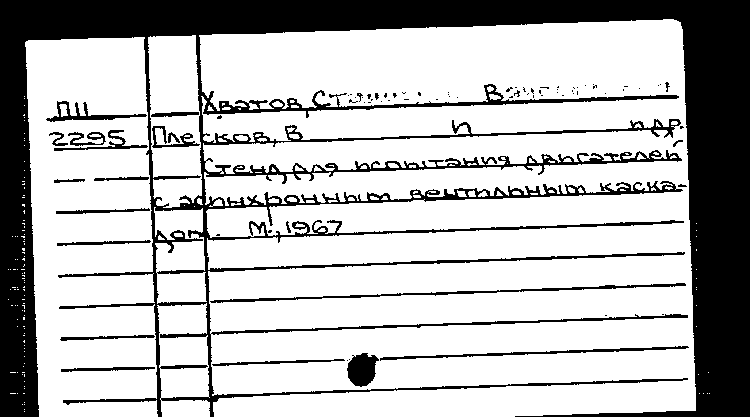 П11 Хватов, Ста
2295 Плесков, В и др.
Стенд для испытания двигателей
с асинхронным вентильным каска-
дом. М., 1967